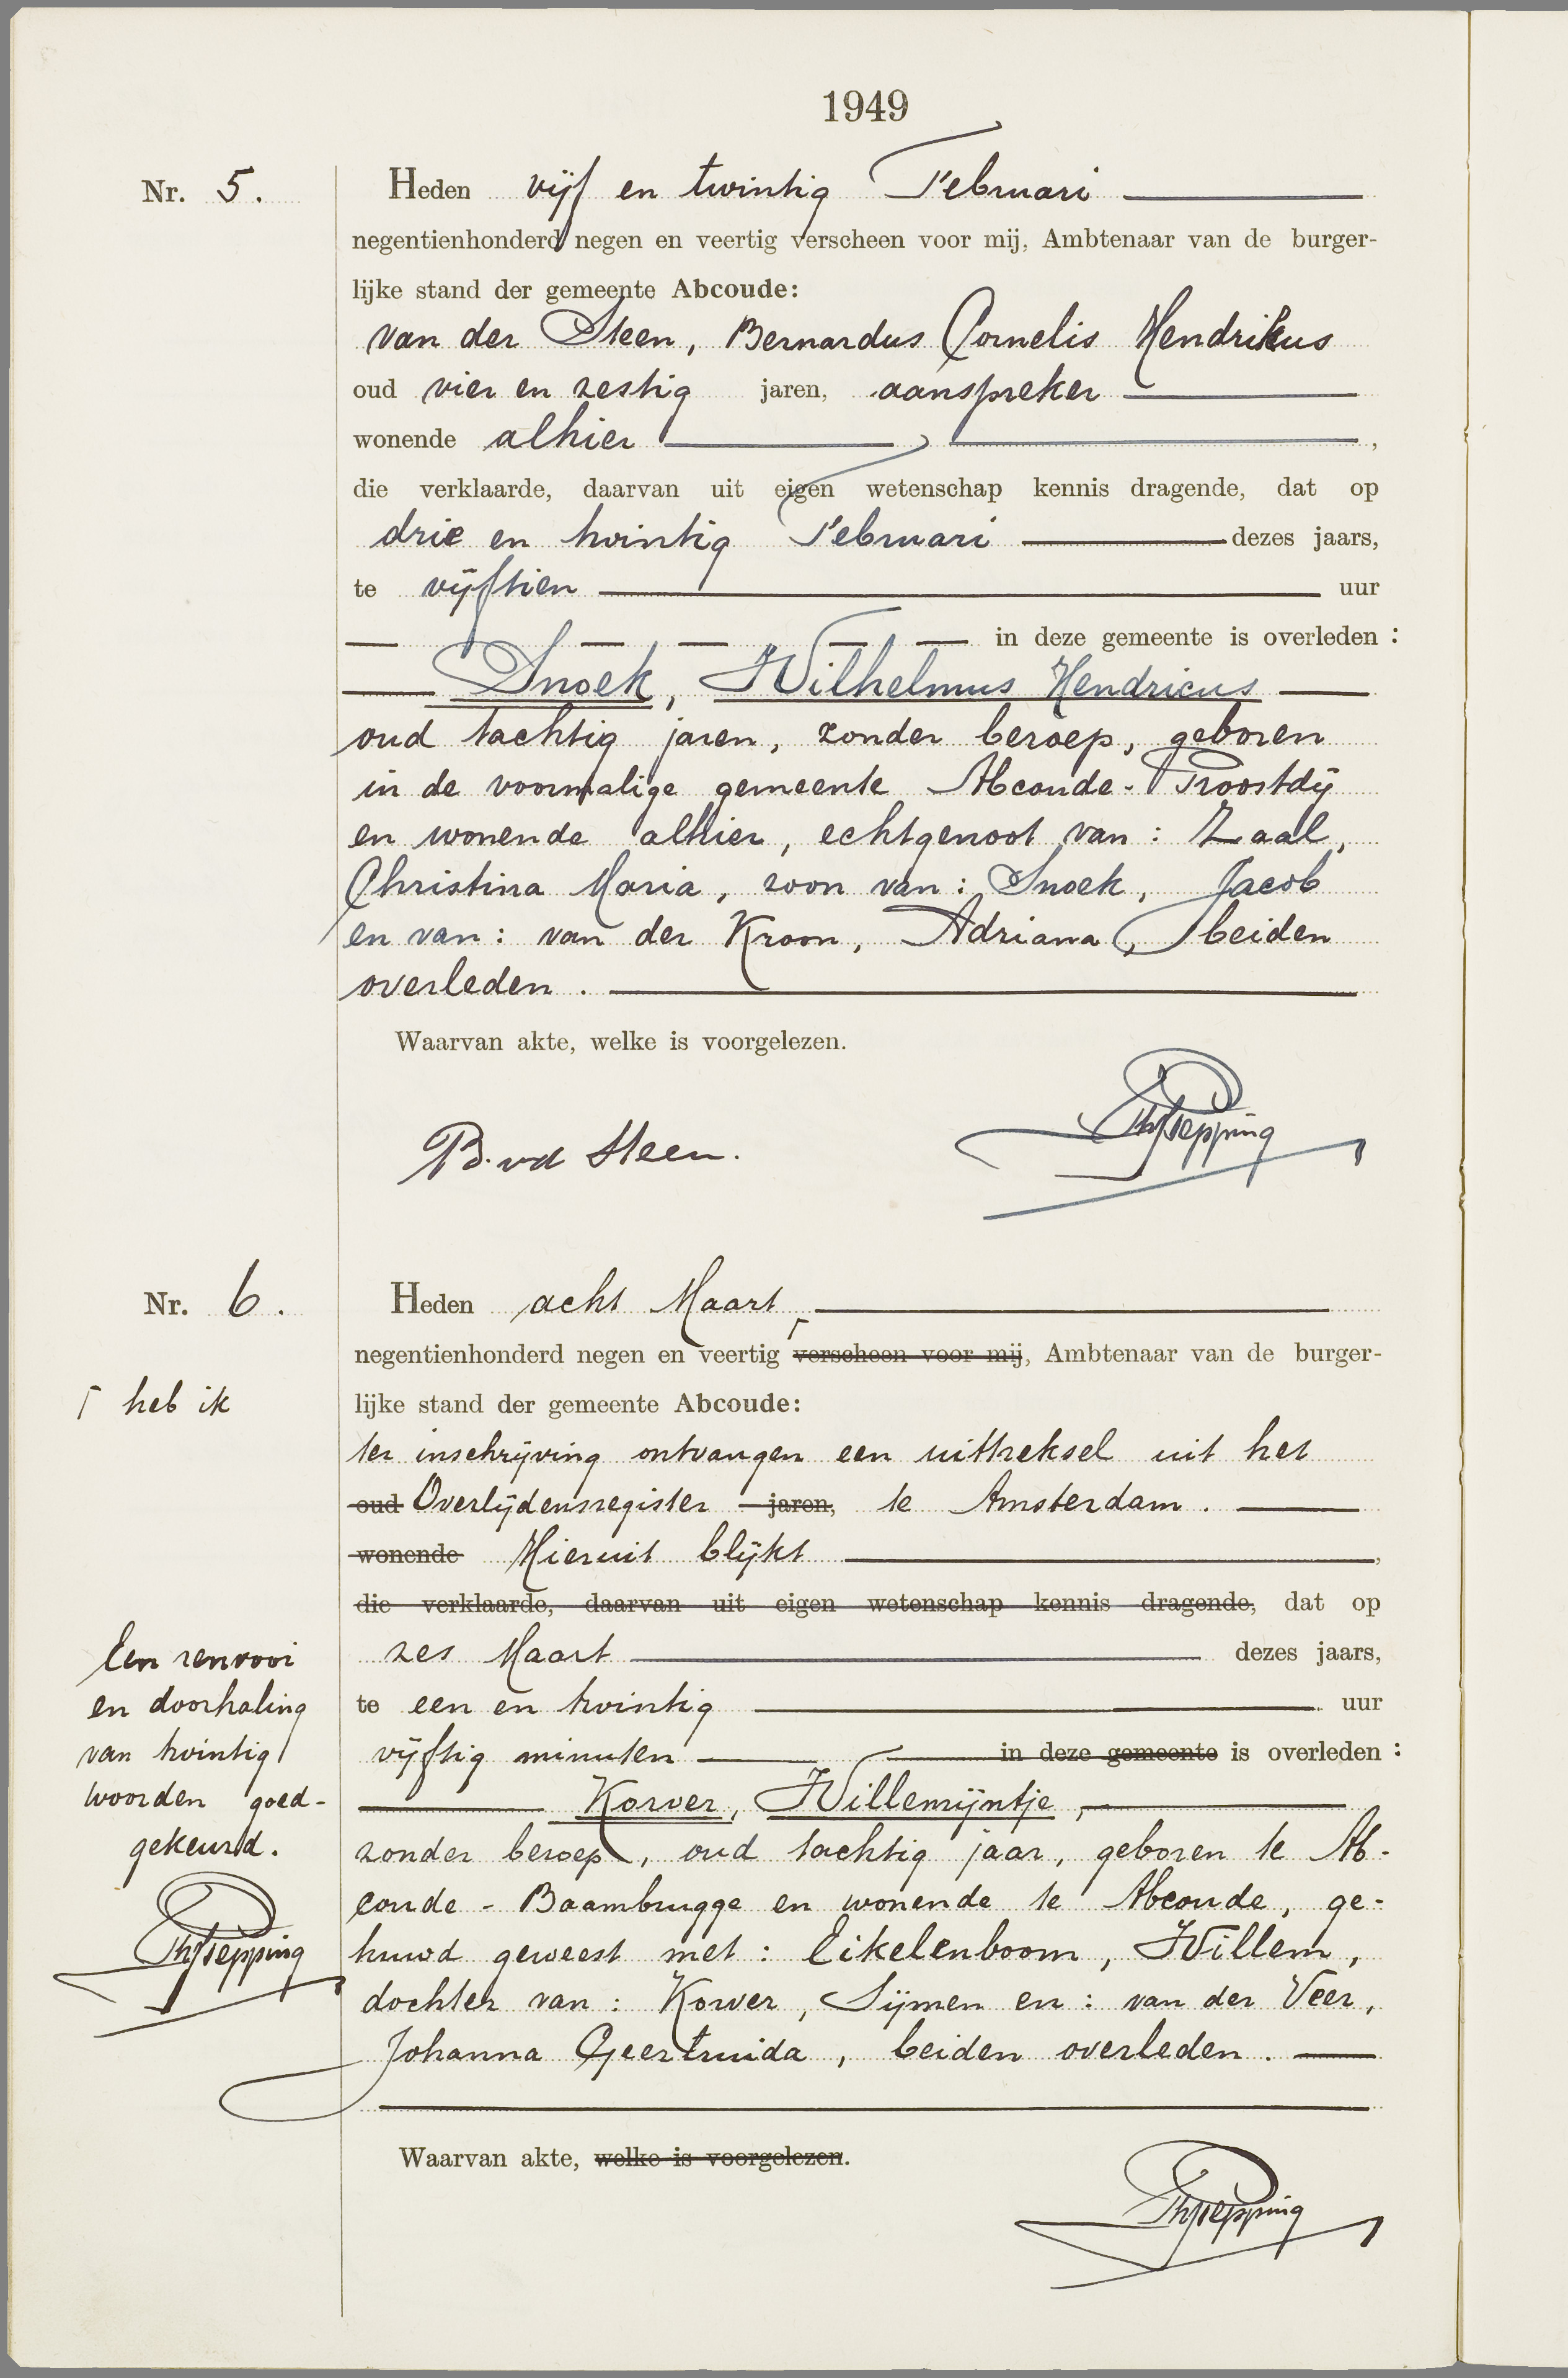 1949
Nr. 5.
Heden vijf en twintig Februari
negentienhonderd negen en veertig verscheen voor mij, Ambtenaar van de burger-
lijke stand der gemeente Abcoude:
van der Steen, Bernardus Cornelis Hendrikus
oud vier en zestig jaren, aanspreker
wonende alhier ,
die verklaarde, daarvan uit eigen wetenschap kennis dragende, dat op
drie en twintig Februari dezes jaars,
te vijftien uur
in deze gemeente is overleden :
Snoek, Wilhelmus Hendricus
oud tachtig jaren, zonder beroep, geboren
in de voormalige gemeente Abcoude-Proostdij
en wonende alhier, echtgenoot van : Zaal,
Christina Maria, zoon van : Snoek, Jacob
en van : van der Kroon, Adriana, beiden
overleden.
Waarvan akte, welke is voorgelezen.
B. vd Steen.
Nr. 6.
Heden acht Maart
negentienhonderd negen en veertig ┌ verscheen voor mij, Ambtenaar van de burger-
┌ heb ik
lijke stand der gemeente Abcoude:
ter inschrijving ontvangen een uittreksel uit het
oud Overlijdensregister jaren, te Amsterdam.
wonende Hieruit blijkt ,
die verklaarde, daarvan uit eigen wetenschap kennis dragende, dat op
zes Maart dezes jaars,
te een en twintig uur
vijftig minuten in deze gemeente is overleden :
Korver, Willemijntje,
zonder beroep, oud tachtig jaar, geboren te Ab-
coude - Baambrugge en wonende te Abcoude, ge-
huwd geweest met : Eikelenboom, Willem,
dochter van : Korver, Sijmen en : van der Veer,
Johanna Geertruida, beiden overleden.
Een renvooi
en doorhaling
van twintig
woorden goed-
gekeurd.
Waarvan akte, welke is voorgelezen.